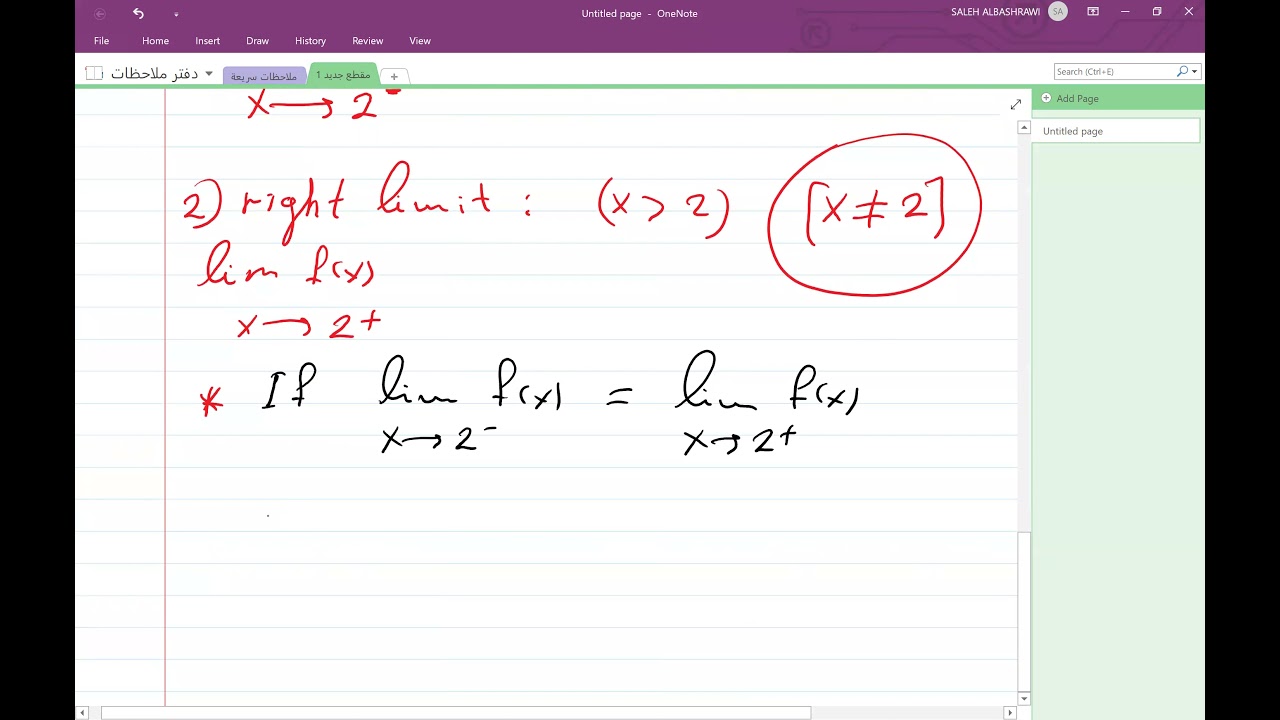 Untitled page - OneNote
SALEH ALBASHRAWI
SA
File Home Insert Draw History Review View
دفتر ملاحظات
ملاحظات سريعة
مقطع جديد 1
+
Search (Ctrl+E)
Add Page
Untitled page
x → 2⁻
2) right limit : (x > 2) [x ≠ 2]
lim f(x)
x → 2+
* If lim f(x) = lim f(x)
x → 2⁻ x → 2+